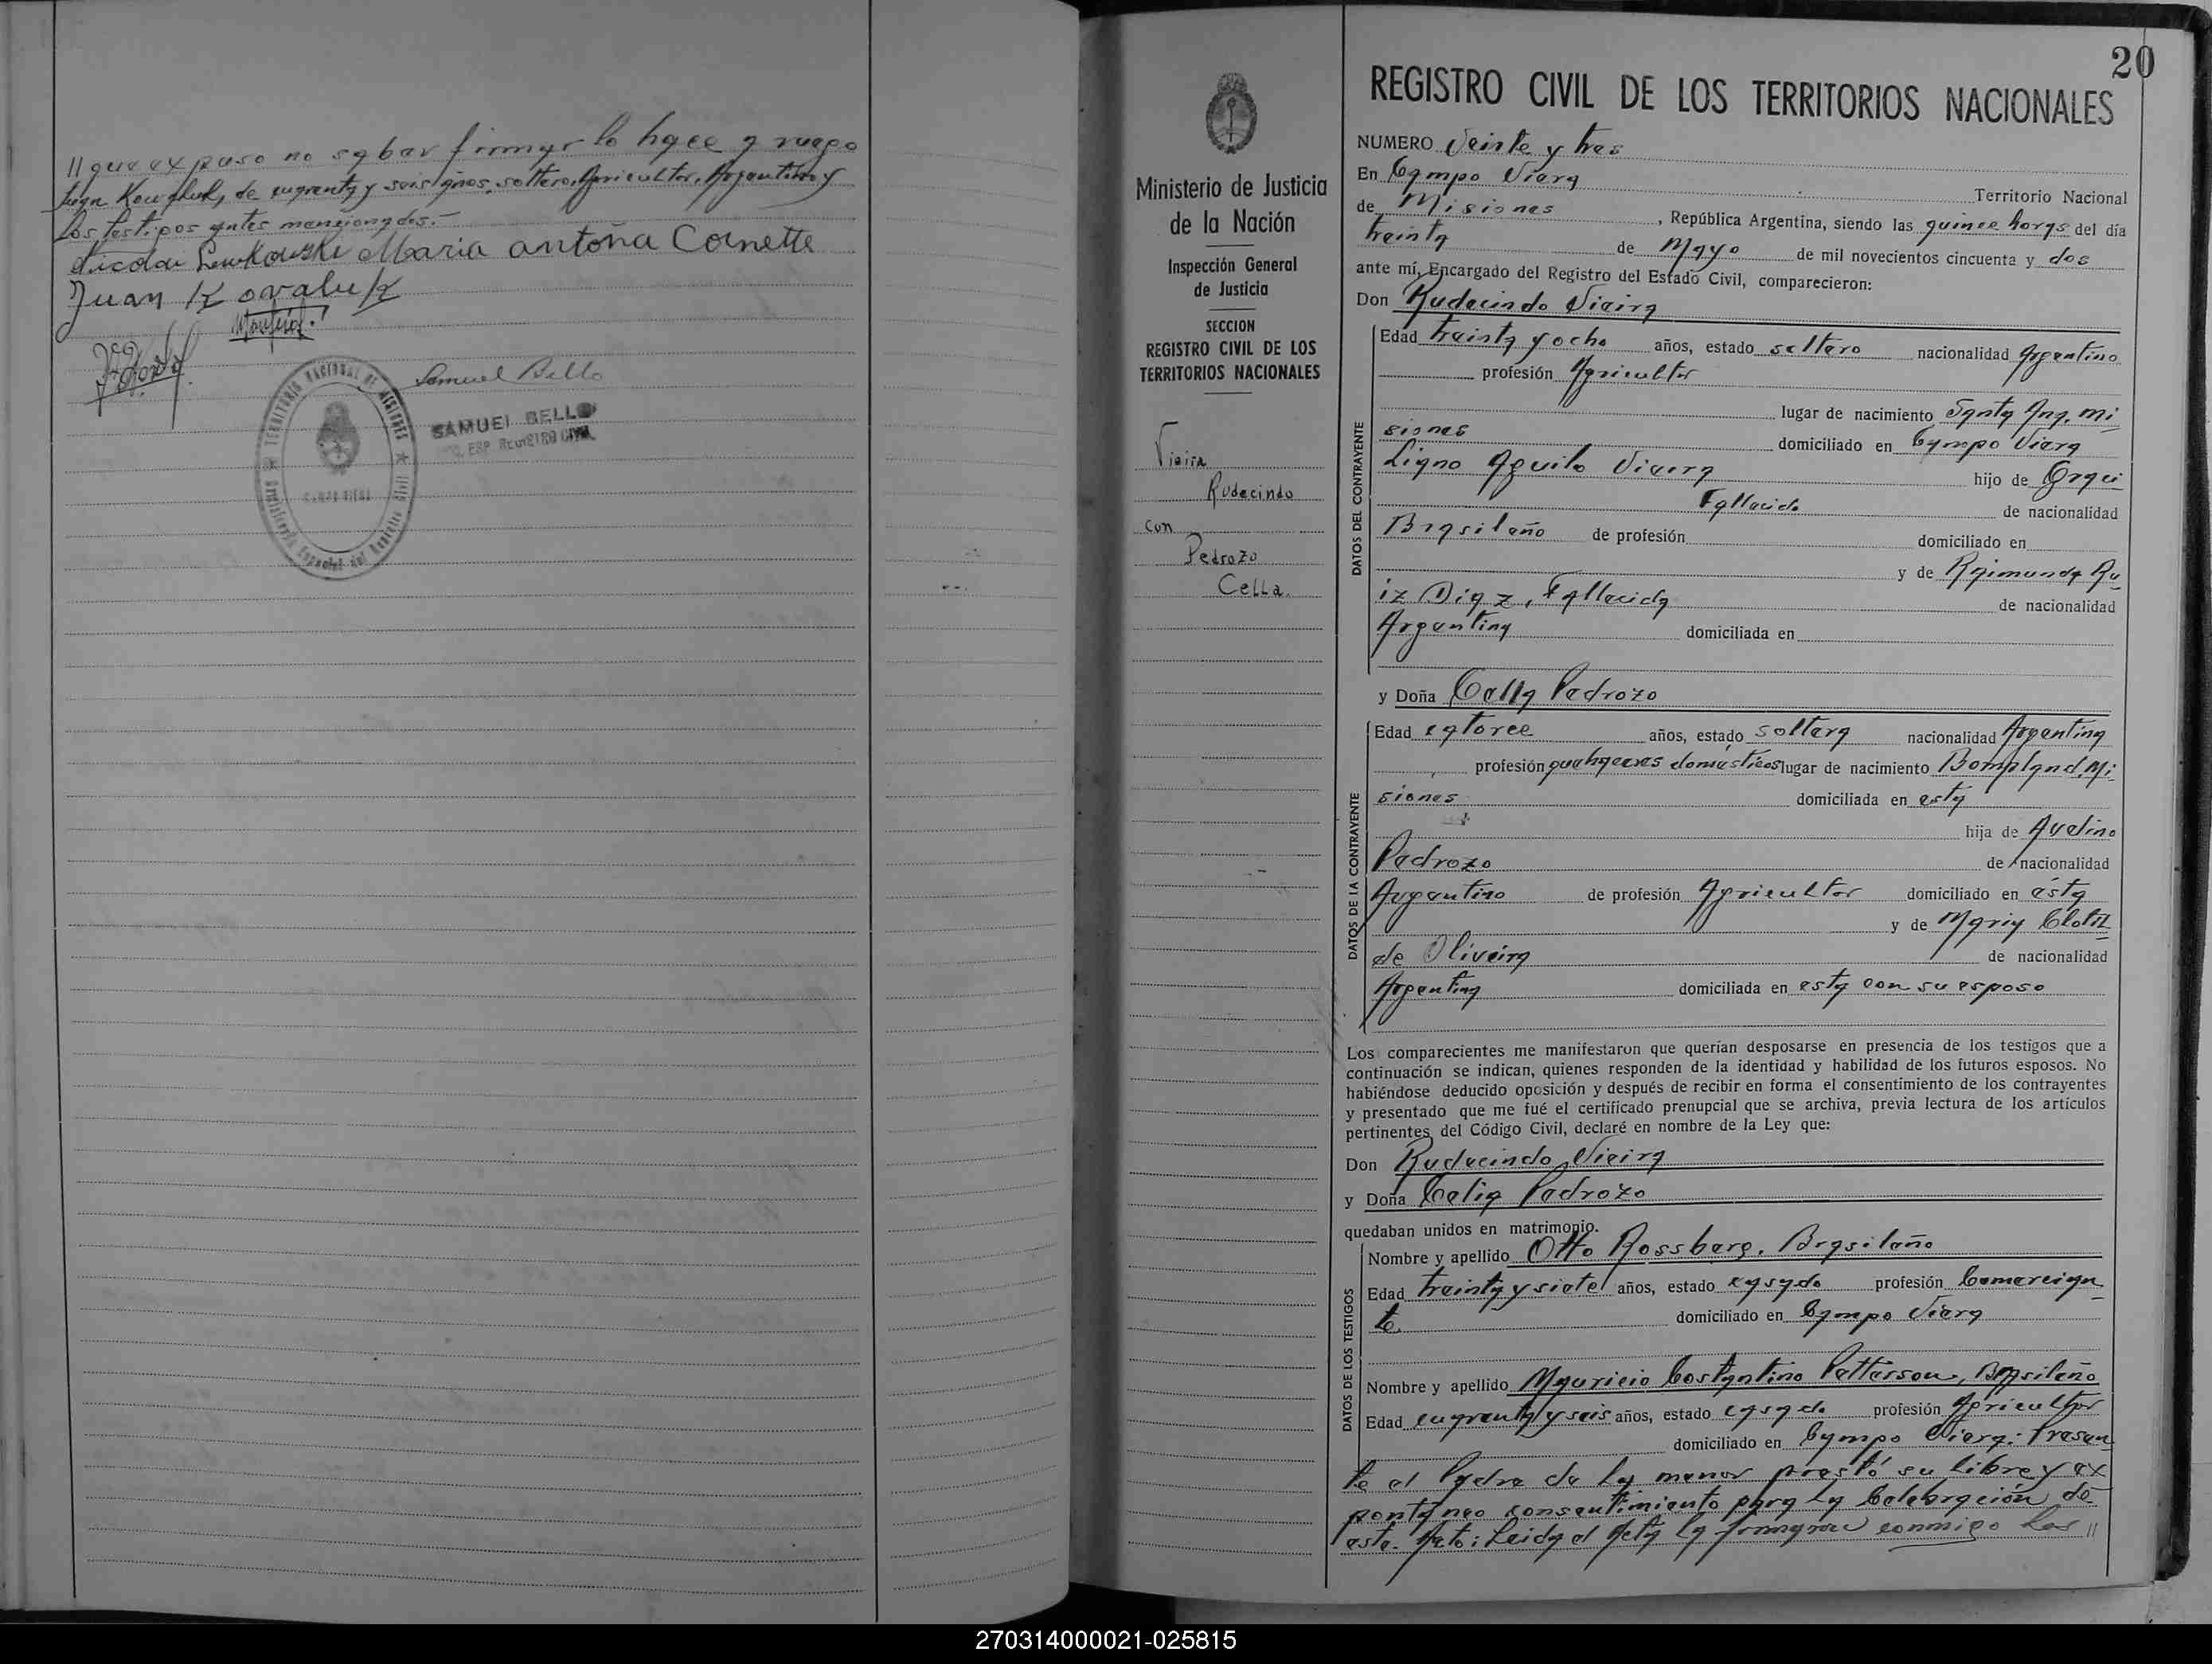 // que expuso no saber firmar lo hace a ruego
Juan Kowaluk, de cuarenta y seis años, soltero, Agricultor, Argentino y
los testigos antes mencionados.-
Maria Antoña Cornette
Juan Kovaluk
Samuel Bello
TERRITORIO NACIONAL DE MISIONES
SAMUEL BELLO
ESP. REGISTRO CIVIL
20
REGISTRO CIVIL DE LOS TERRITORIOS NACIONALES
Ministerio de Justicia
de la Nación
Inspección General
de Justicia
SECCION
REGISTRO CIVIL DE LOS
TERRITORIOS NACIONALES
Vieira
Rudecindo
con
Pedrozo
Cella.
NUMERO Veinte y tres
En Campo Viera
Territorio Nacional
de Misiones, República Argentina, siendo las quince horas del día
treinta de Mayo de mil novecientos cincuenta y dos
ante mí, Encargado del Registro del Estado Civil, comparecieron:
Don Rudecindo Vieira
DATOS DEL CONTRAYENTE
Edad treinta y ocho años, estado soltero nacionalidad Argentino
profesión Agricultor
lugar de nacimiento Santa Ana, Mi
siones domiciliado en Campo Viera
hijo de Orqui
Ligno Aguilo Vieira
Fallecido de nacionalidad
Brasileño de profesión domiciliado en
y de Raimunda Ru-
iz Diaz, Fallecida de nacionalidad
Argentina domiciliada en
y Doña Cella Pedrozo
DATOS DE LA CONTRAYENTE
Edad catorce años, estado soltera nacionalidad Argentina
profesión quehaceres domesticos lugar de nacimiento Bompland, Mi-
siones domiciliada en esta
hija de Avelino
Pedrozo de nacionalidad
Argentino de profesión Agricultor domiciliado en ésta
y de Maria Clotil
de Oliveira de nacionalidad
Argentina domiciliada en esta con su esposo
Los comparecientes me manifestaron que querían desposarse en presencia de los testigos que a
continuación se indican, quienes responden de la identidad y habilidad de los futuros esposos. No
habiéndose deducido oposición y después de recibir en forma el consentimiento de los contrayentes
y presentado que me fué el certificado prenupcial que se archiva, previa lectura de los artículos
pertinentes del Código Civil, declaré en nombre de la Ley que:
Don Rudecindo Vieira
y Doña Celia Pedrozo
quedaban unidos en matrimonio.
DATOS DE LOS TESTIGOS
Nombre y apellido Otto Rossberg, Brasileño
Edad treinta y siete años, estado casado profesión Comercian
te domiciliado en Campo Viera
Nombre y apellido Mauricio Costantino Pettersson, Brasileño
Edad cuarenta y seis años, estado casado profesión Agricultor
domiciliado en Campo Viera: Presen
te el Padre de la menor prestó su libre y ex
pontaneo consentimiento para la Celebración de
este Acto: Leida el Acta la firmaron conmigo los //
270314000021-025815